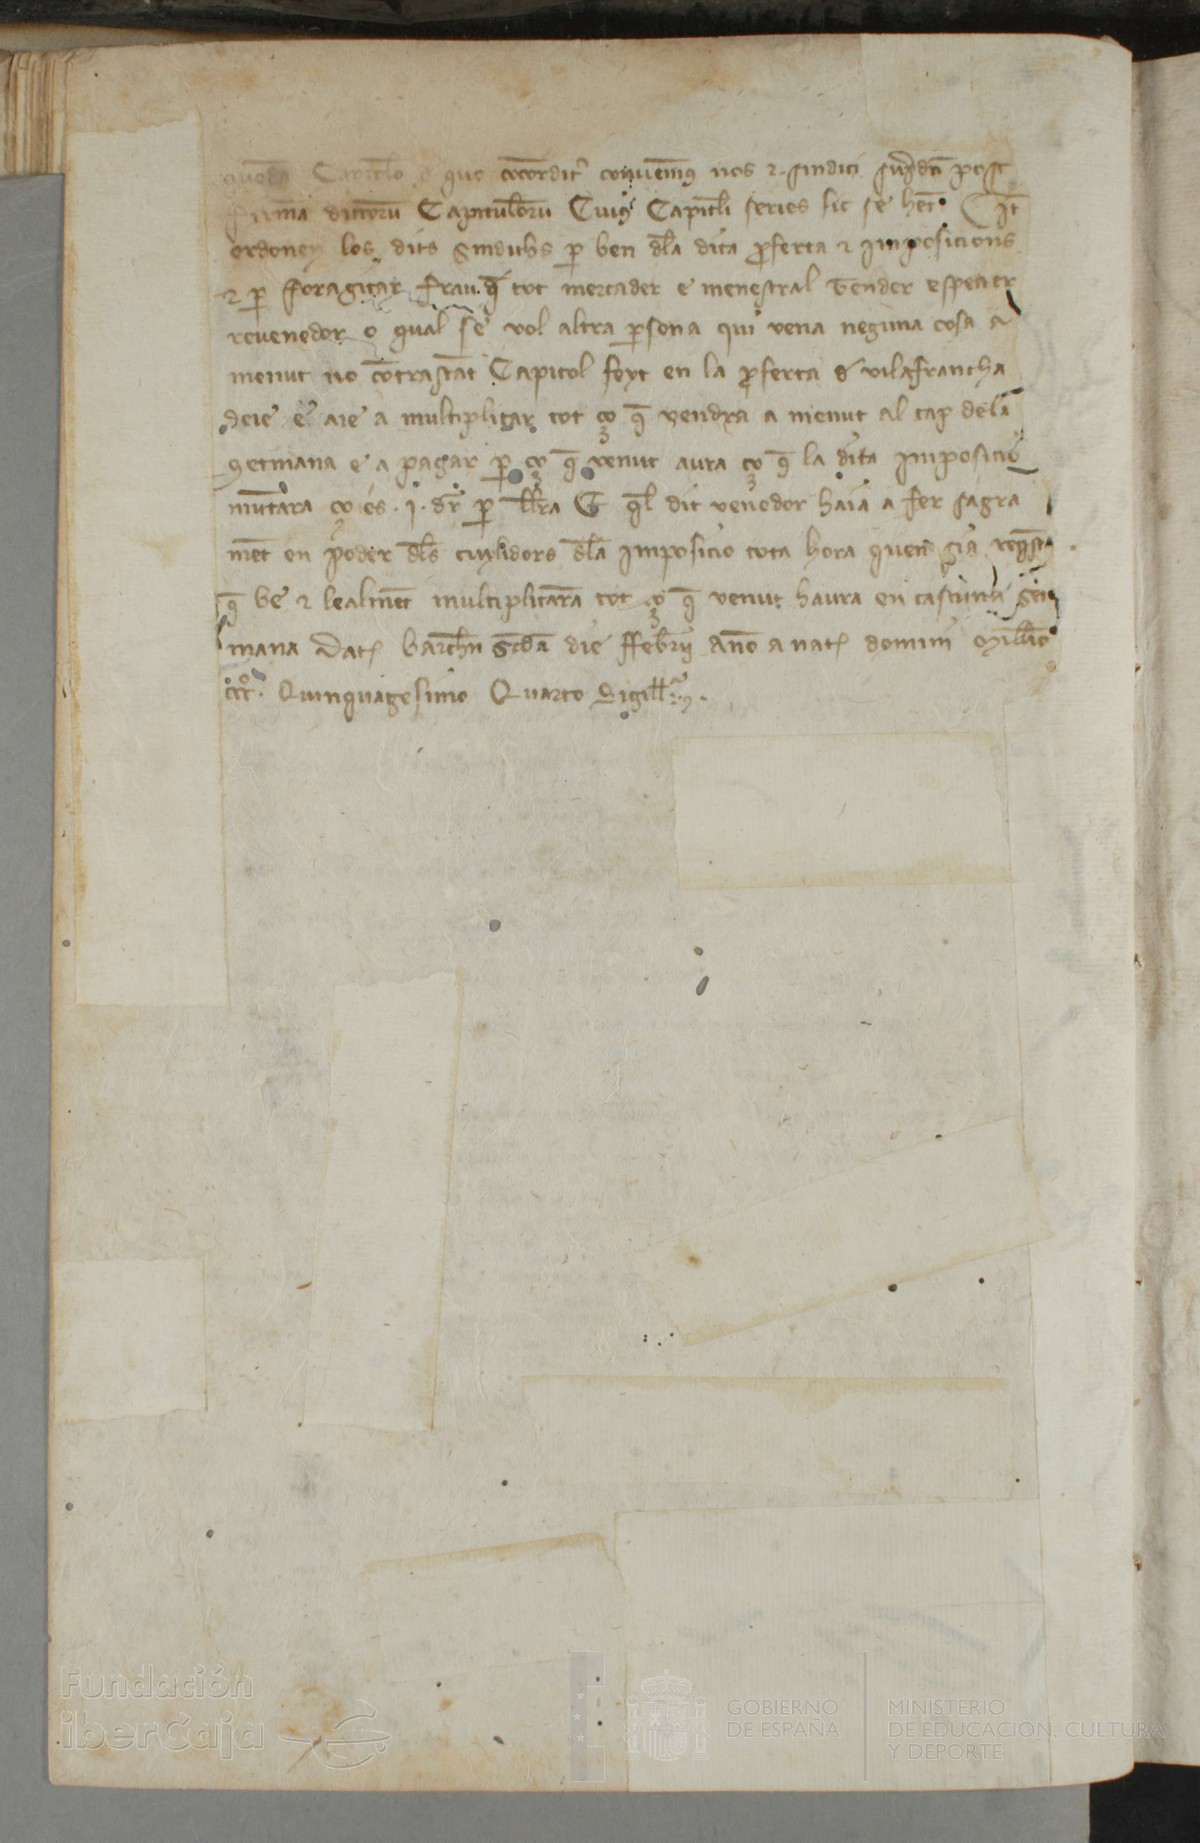 quodā Capitl̄o quo cōcorditʳ conuenimꝰ nos ⁊ sindici sup̄dc̄i post
firmā dictorū Capitulorū Cuiꝰ Capitl̄i series sic se hēt. It̄
ordonen los dits sindichs ꝑ ben dl̄a dita ꝓferta ⁊ Imposicions
⁊ ꝑ foragitar frau. q̄ tot mercader e menestral tender especier
reuenedor o qual se vol altra ꝑsona qui vena neguna cosa a
menut no cōtrastāt Capitol feyt en la ꝓferta d vilafrancha
deie e aie a multiplicar tot ço q̄ vendra a menut al cap dela
setmana e a pagar ꝑ ço q̄ venut aura ço q̄ la dita Imposicio
mūtara ço es .j. dr̄ ꝑ ll̄ra E ql̄ dit venedor haia a fer sagra
mēt en poder dl̄s cuylidors dl̄a Imposicio tota hora quen sia
q̄ be ⁊ lealmēt multiplicara tot ço q̄ venut haura en cascuna set
mana Datꝭ barchn̄ scd̄a die ffebr̄ij Año a natꝭ domini Mill̄io
CCCº. Quinquagesimo Quarto Sigill̄
Fundación
iberCaja
GOBIERNO
DE ESPAÑA
MINISTERIO
DE EDUCACIÓN, CULTURA
Y DEPORTE